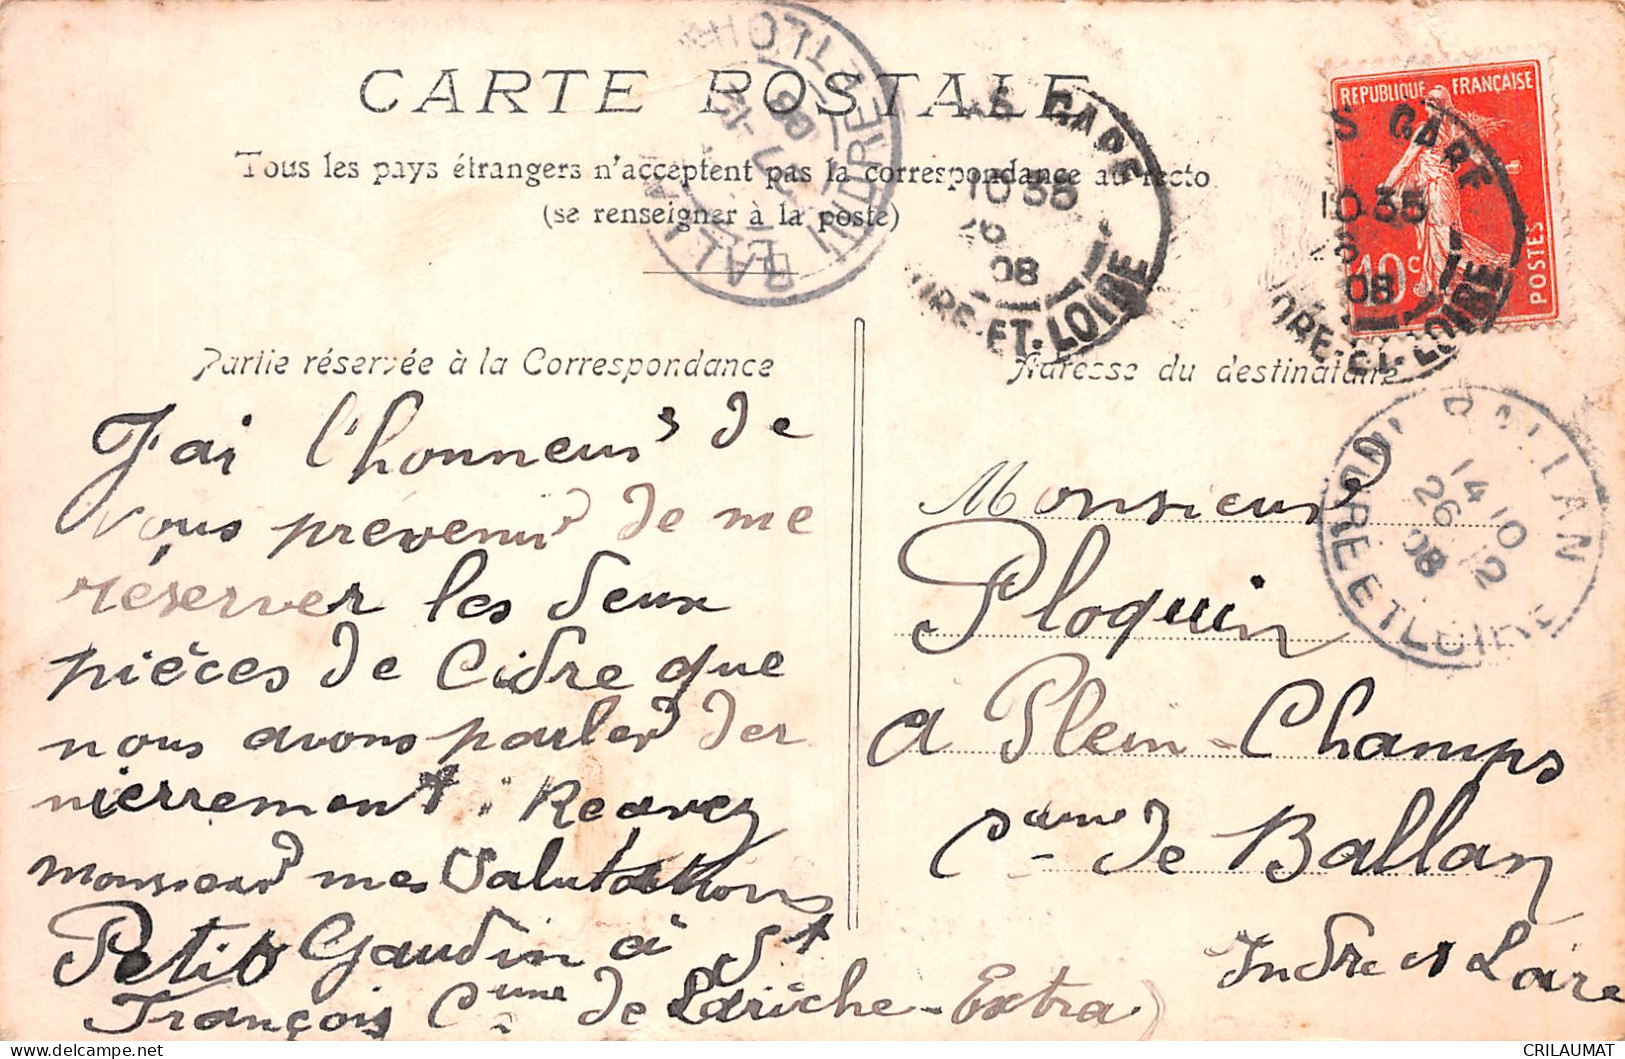 CARTE POSTALE
Tous les pays étrangers n'acceptent pas la correspondance au recto
(se renseigner à la poste)
REPUBLIQUE FRANÇAISE
10c
POSTES
S GARE
10 35
26
08
INDRE-ET-LOIRE
S GARE
10 35
08
INDRE-ET-LOIRE
BALLAN
INDRE ET LOIRE
08
BALLAN
14 10
26 12
08
INDRE ET LOIRE
Partie réservée à la Correspondance
Adresse du destinataire
J'ai l'honneur de
vous prevenir de me
réserver les deux
pièces de Cidre que
nous avons parler der
nierrement. Recevez
monsieur mes Salutations
Petit Gaudin à St
François Cmne de Lariche-Extra
Monsieur
Ploquin
a Plein-Champs
Cmne de Ballan
Indre et Loire
CRILAUMAT